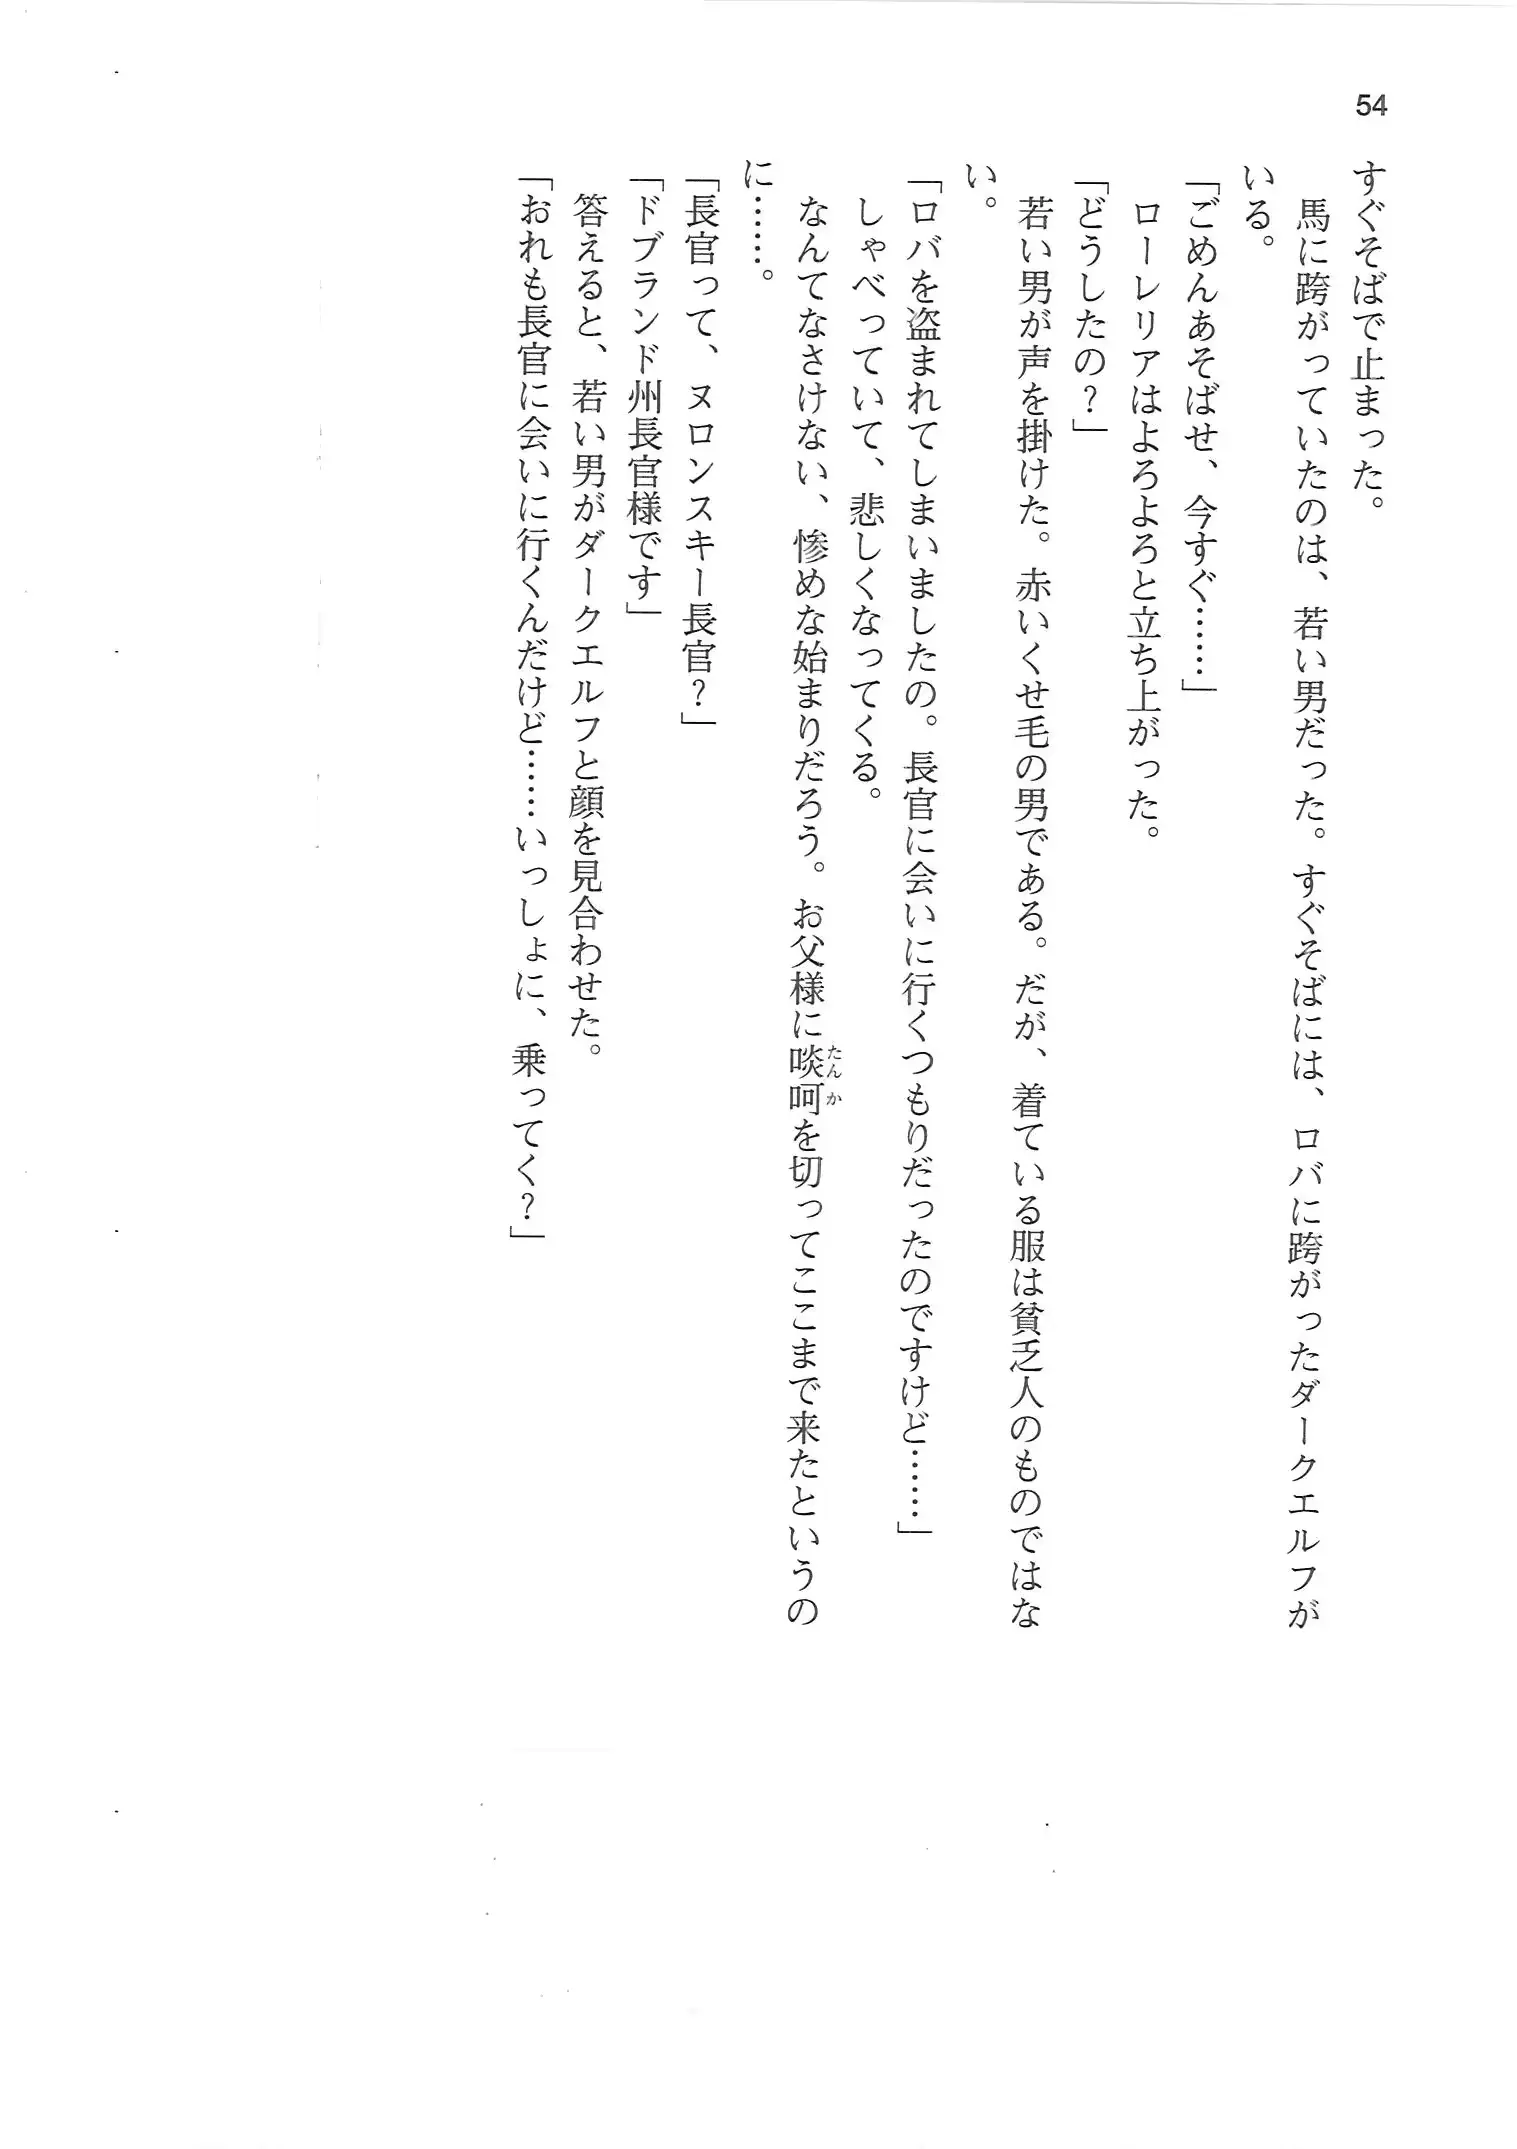 54
すぐそばで止まった。
　馬に跨がっていたのは、若い男だった。すぐそばには、ロバに跨がったダークエルフが
いる。
「ごめんあそばせ、今すぐ……」
　ローレリアはよろよろと立ち上がった。
「どうしたの？」
　若い男が声を掛けた。赤いくせ毛の男である。だが、着ている服は貧乏人のものではな
い。
「ロバを盗まれてしまいましたの。長官に会いに行くつもりだったのですけど……」
　しゃべっていて、悲しくなってくる。
　なんてなさけない、惨めな始まりだろう。お父様に啖呵を切ってここまで来たというの
たんか
に……。
「長官って、ヌロンスキー長官？」
「ドブランド州長官様です」
　答えると、若い男がダークエルフと顔を見合わせた。
「おれも長官に会いに行くんだけど……いっしょに、乗ってく？」